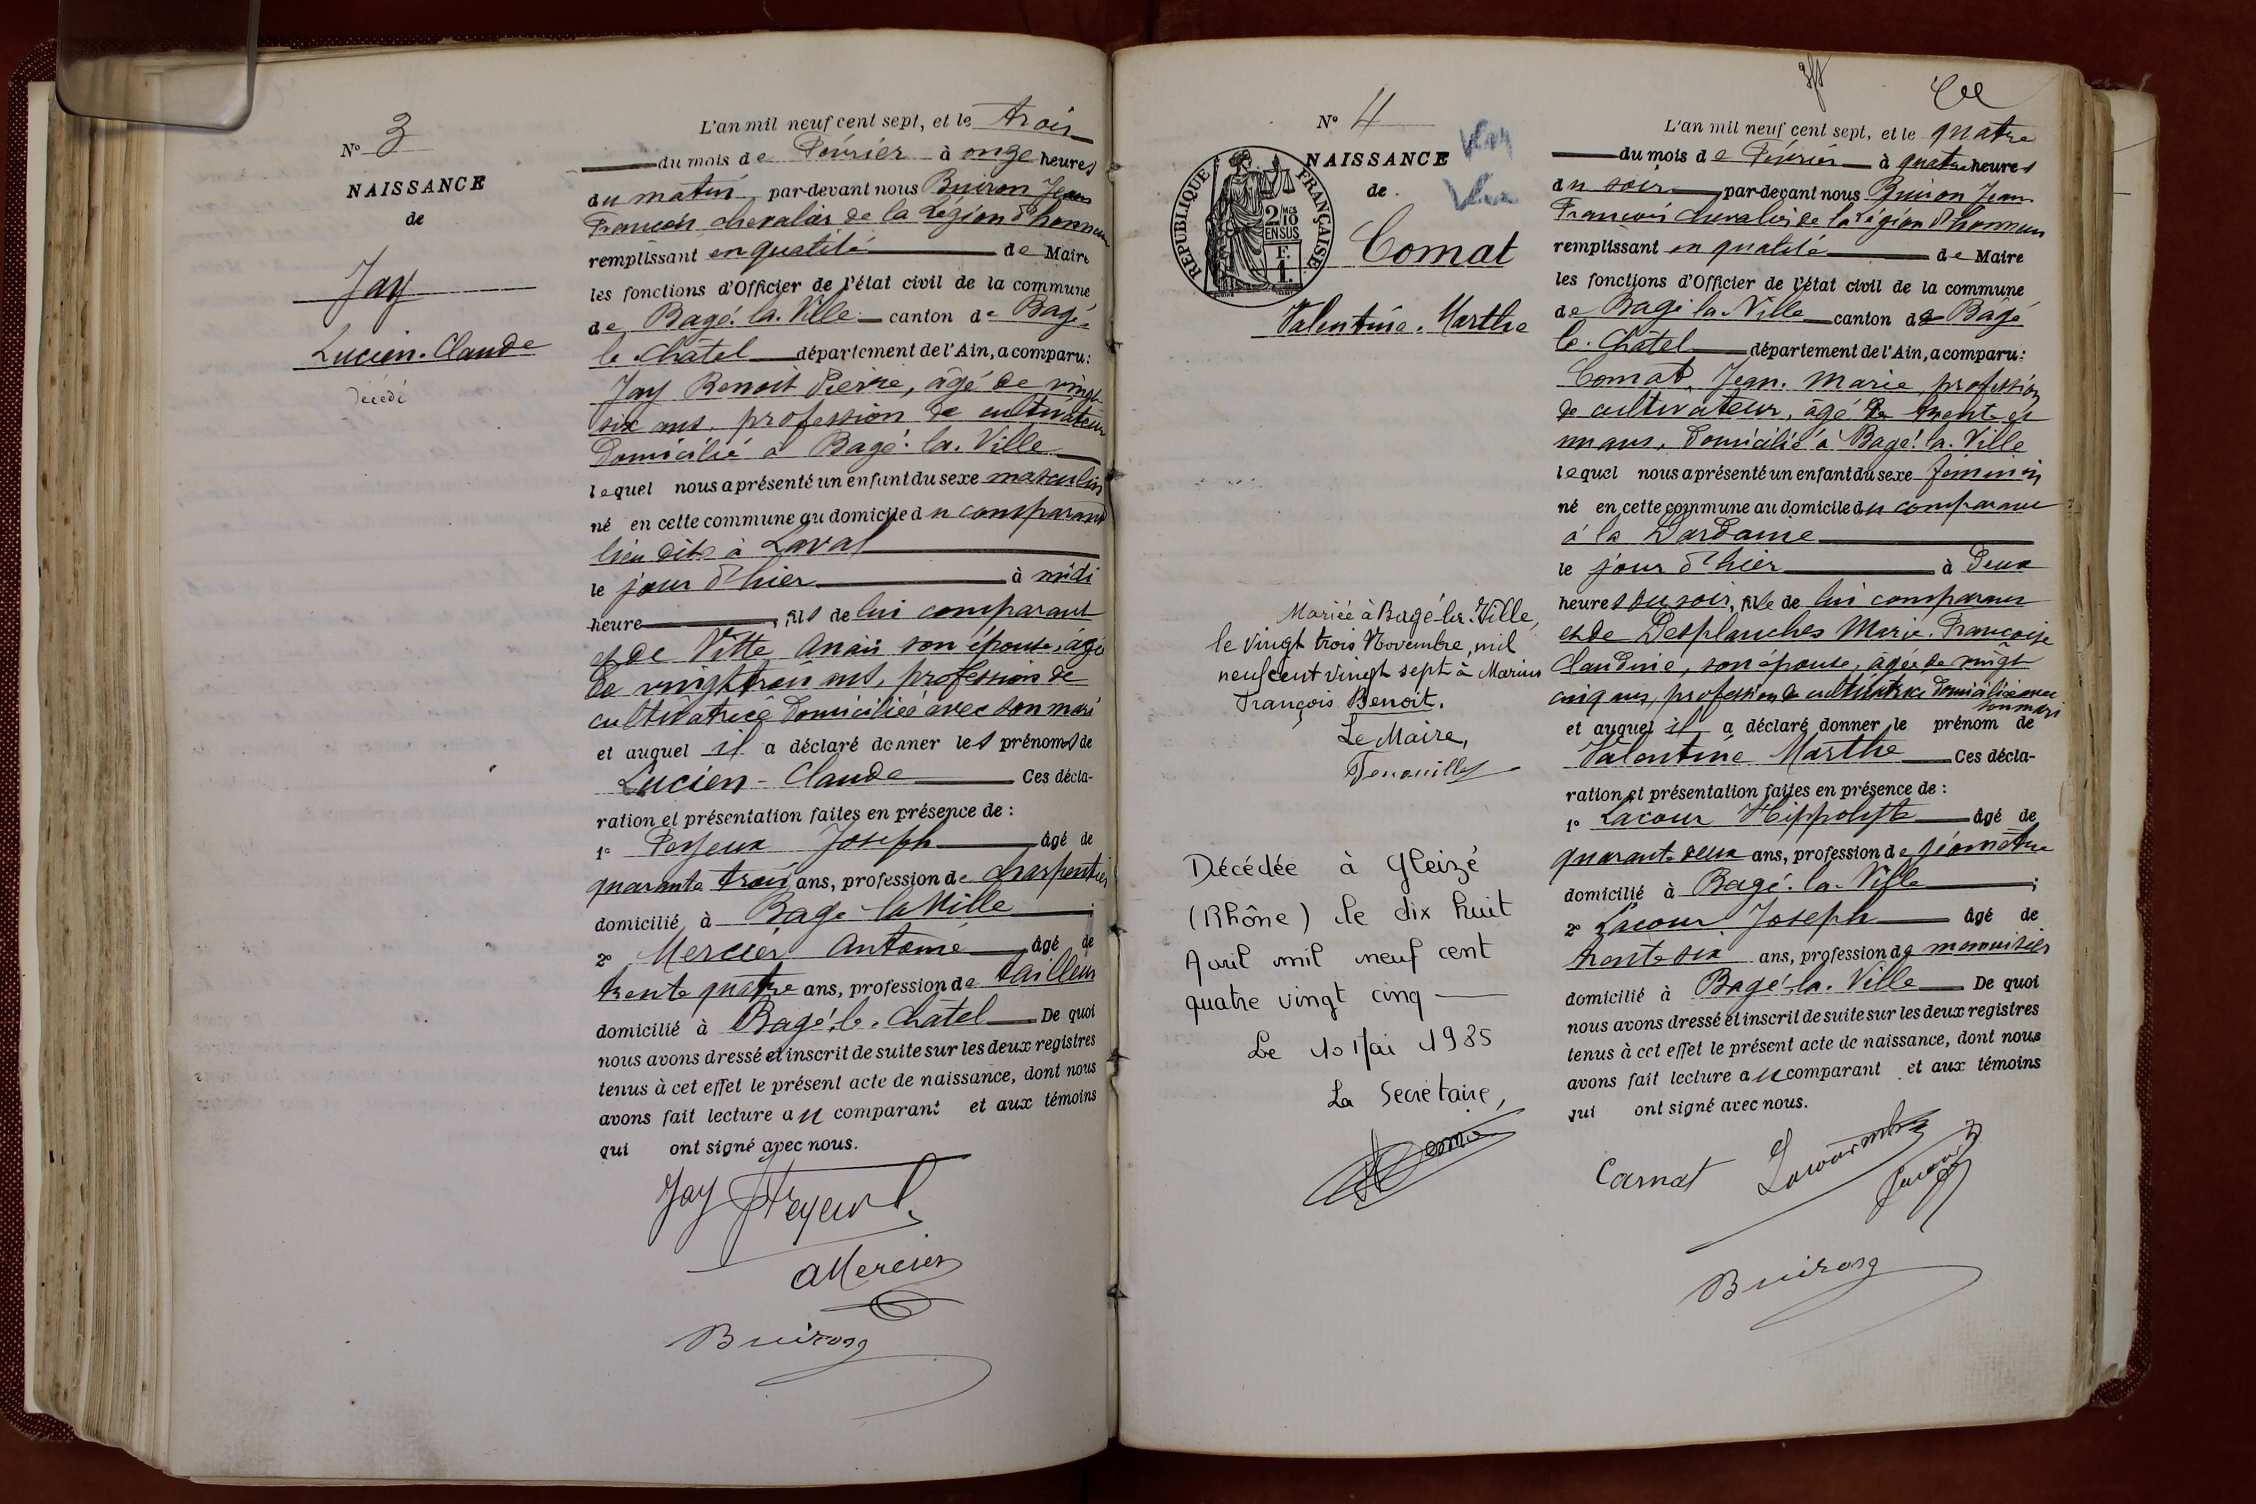 N° 3
NAISSANCE
de
Jay
Lucien-Claude
décédé
L'an mil neuf cent sept, et le trois
du mois de Février à onze heures
du matin par-devant nous Buiron Jean
François chevalier de la Légion d'honneur
remplissant en qualité de Maire
les fonctions d'Officier de l'état civil de la commune
de Bagé-la-Ville canton de Bagé-
le-Châtel département de l'Ain, a comparu:
Jay Benoit Pierre, âgé de vingt
six ans, profession de cultivateur
domicilié à Bagé-la-Ville
lequel nous a présenté un enfant du sexe masculin
né en cette commune au domicile du comparant
lieu dit à Laval
le jour d'hier à midi
heure, fils de lui comparant
et de Vitte Anaïs son épouse, âgée
de vingt trois ans, profession de
cultivatrice domiciliée avec son mari
et auquel il a déclaré donner les prénoms de
Lucien-Claude Ces décla-
ration et présentation faites en présence de :
1° Peyeux Joseph âgé de
quarante trois ans, profession de charpentier
domicilié à Bagé-la Ville ;
2° Mercier Antoine âgé de
trente quatre ans, profession de tailleur
domicilié à Bagé-le-Châtel De quoi
nous avons dressé et inscrit de suite sur les deux registres
tenus à cet effet le présent acte de naissance, dont nous
avons fait lecture au comparant et aux témoins
qui ont signé avec nous.
Jay
AMercier
Buiron
N° 4
NAISSANCE
de
RÉPUBLIQUE FRANÇAISE
2/10 EN SUS
Comat
Valentine-Marthe
Mariée à Bagé-la-Ville,
le vingt trois Novembre, mil
neuf cent vingt sept à Marius
François Benoit.
Le Maire,
Décédée à Gleizé
(Rhône) le dix huit
Avril mil neuf cent
quatre vingt cinq
Le 10 Mai 1985
La Secrétaire,
L'an mil neuf cent sept, et le quatre
du mois de Février à quatre heures
du soir par-devant nous Buiron Jean
François chevalier de la légion d'honneur
remplissant en qualité de Maire
les fonctions d'Officier de l'état civil de la commune
de Bagé-la-Ville canton de Bagé
le-Châtel département de l'Ain, a comparu:
Comat Jean-Marie, profession
de cultivateur, âgé de trente et
un ans, domicilié à Bagé-la-Ville
lequel nous a présenté un enfant du sexe féminin
né en cette commune au domicile du comparant
à la Dardaine
le jour d'hier à deux
heures du soir, fille de lui comparant
et de Desplanches Marie-Françoise
Claudine, son épouse, âgée de vingt
cinq ans, profession de cultivatrice domiciliée avec
son mari
et auquel il a déclaré donner le prénom de
Valentine Marthe Ces décla-
ration et présentation faites en présence de :
1° Lacour Hippolyte âgé de
quarante deux ans, profession de géomètre
domicilié à Bagé-la-Ville ;
2° Lacour Joseph âgé de
trente six ans, profession de menuisier
domicilié à Bagé-la-Ville De quoi
nous avons dressé et inscrit de suite sur les deux registres
tenus à cet effet le présent acte de naissance, dont nous
avons fait lecture au comparant et aux témoins
qui ont signé avec nous.
Comat
Buiron